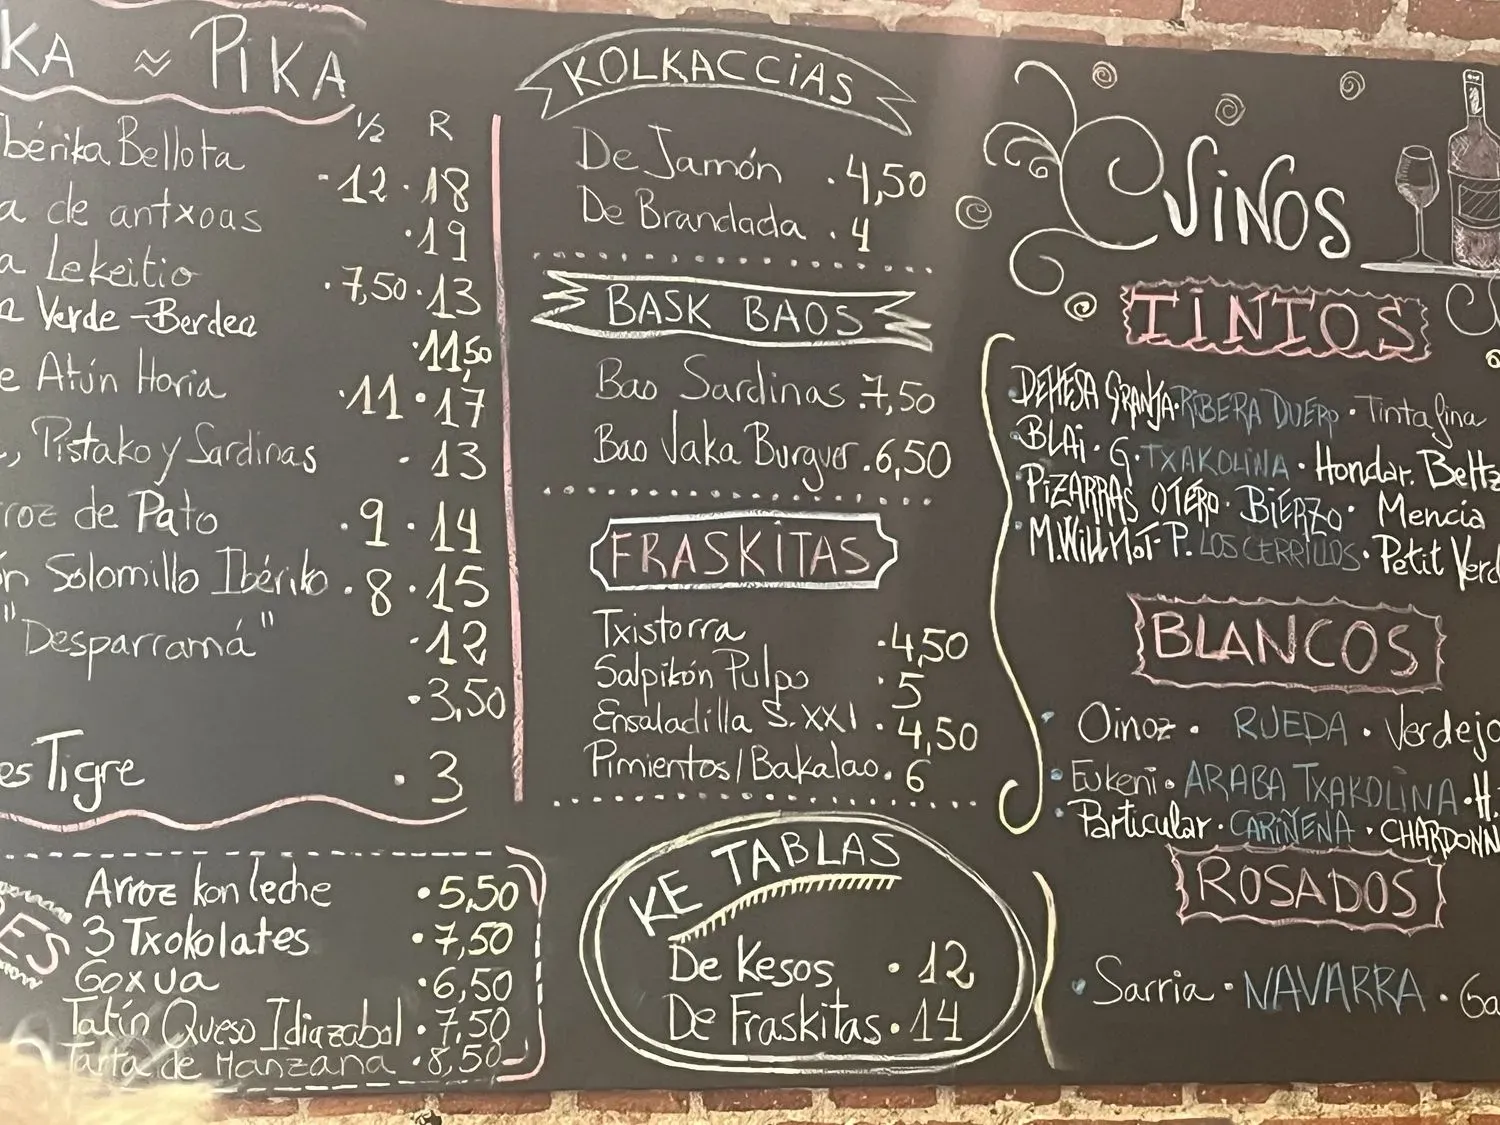 KA ≈ PiKA
1/2 R
Ibérika Bellota · 12 · 18
a de antxoas · 19
a Lekeitio · 7,50 · 13
a Verde - Berdea · 11,50
e Atún Horia · 11 · 17
, Pistako y Sardinas · 13
roz de Pato · 9 · 14
ón Solomillo Ibériko · 8 · 15
"Desparramá" · 12
· 3,50
es Tigre · 3
ES
Arroz kon leche · 5,50
3 Txokolates · 7,50
Goxua · 6,50
Tatín Queso Idiazabal · 7,50
Tarta de Manzana · 8,50
KOLKACCiAS
De Jamón · 4,50
De Brandada · 4
BASK BAOS
Bao Sardinas · 7,50
Bao Vaka Burguer · 6,50
FRASKiTAS
Txistorra · 4,50
Salpikón Pulpo · 5
Ensaladilla S. XXI · 4,50
Pimientos/Bakalao · 6
KE TABLAS
De Kesos · 12
De Fraskitas · 14
ViNOS
TiNTOS
· DEHESA GRANJA · RIBERA DUERO · Tinta fina
· BLAi · G. TXAKOLINA · Hondar. Beltz
· PiZARRAS OTERO · BiERZO · Mencia
· M.WILLMOT · P. LOS CERRILLOS · Petit Verd
BLANCOS
· Oinoz · RUEDA · Verdejo
· Eukeni · ARABA TXAKOLINA · H.
· Particular · CARIÑENA · CHARDONN
ROSADOS
· Sarria · NAVARRA · Ga